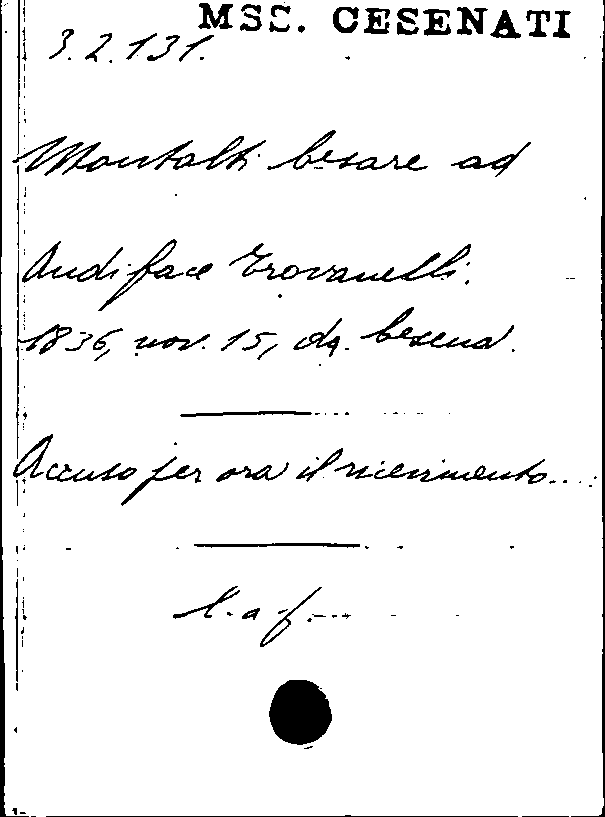 MSS. CESENATI
3.2.131.
Montalti Cesare ad
Andiface Trovanelli.
1836, nov. 15, da Cesena.
Accuso per ora il ricevimento....
l. a f.